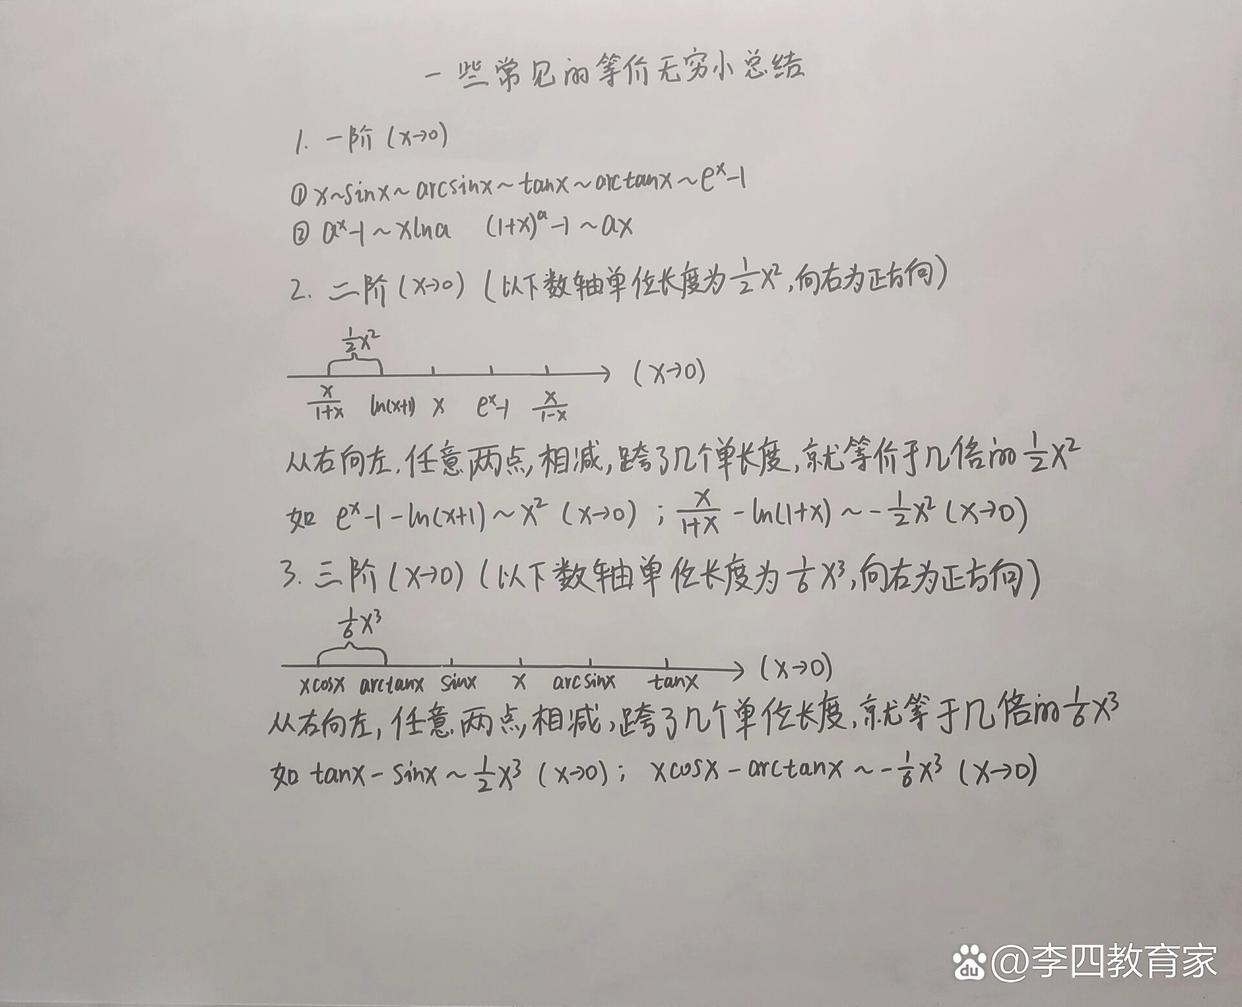 一些常见的等价无穷小总结
1. 一阶 (x→0)
① x~sinx~arcsinx~tanx~arctanx~eˣ-1
② aˣ-1~xlna (1+x)ᵅ-1~ax
2. 二阶 (x→0) (以下数轴单位长度为½x²,向右为正方向)
½x²
(x→0)
x/(1+x) ln(x+1) x eˣ-1 x/(1-x)
从右向左,任意两点,相减,跨了几个单长度,就等价于几倍的½x²
如 eˣ-1-ln(x+1)~x² (x→0) ; x/(1+x) - ln(1+x) ~ -½x² (x→0)
3. 三阶 (x→0) (以下数轴单位长度为⅙x³,向右为正方向)
⅙x³
(x→0)
xcosx arctanx sinx x arcsinx tanx
从右向左,任意两点,相减,跨了几个单位长度,就等于几倍的⅙x³
如 tanx - sinx ~ ½x³ (x→0); xcosx - arctanx ~ -⅙x³ (x→0)
du @李四教育家